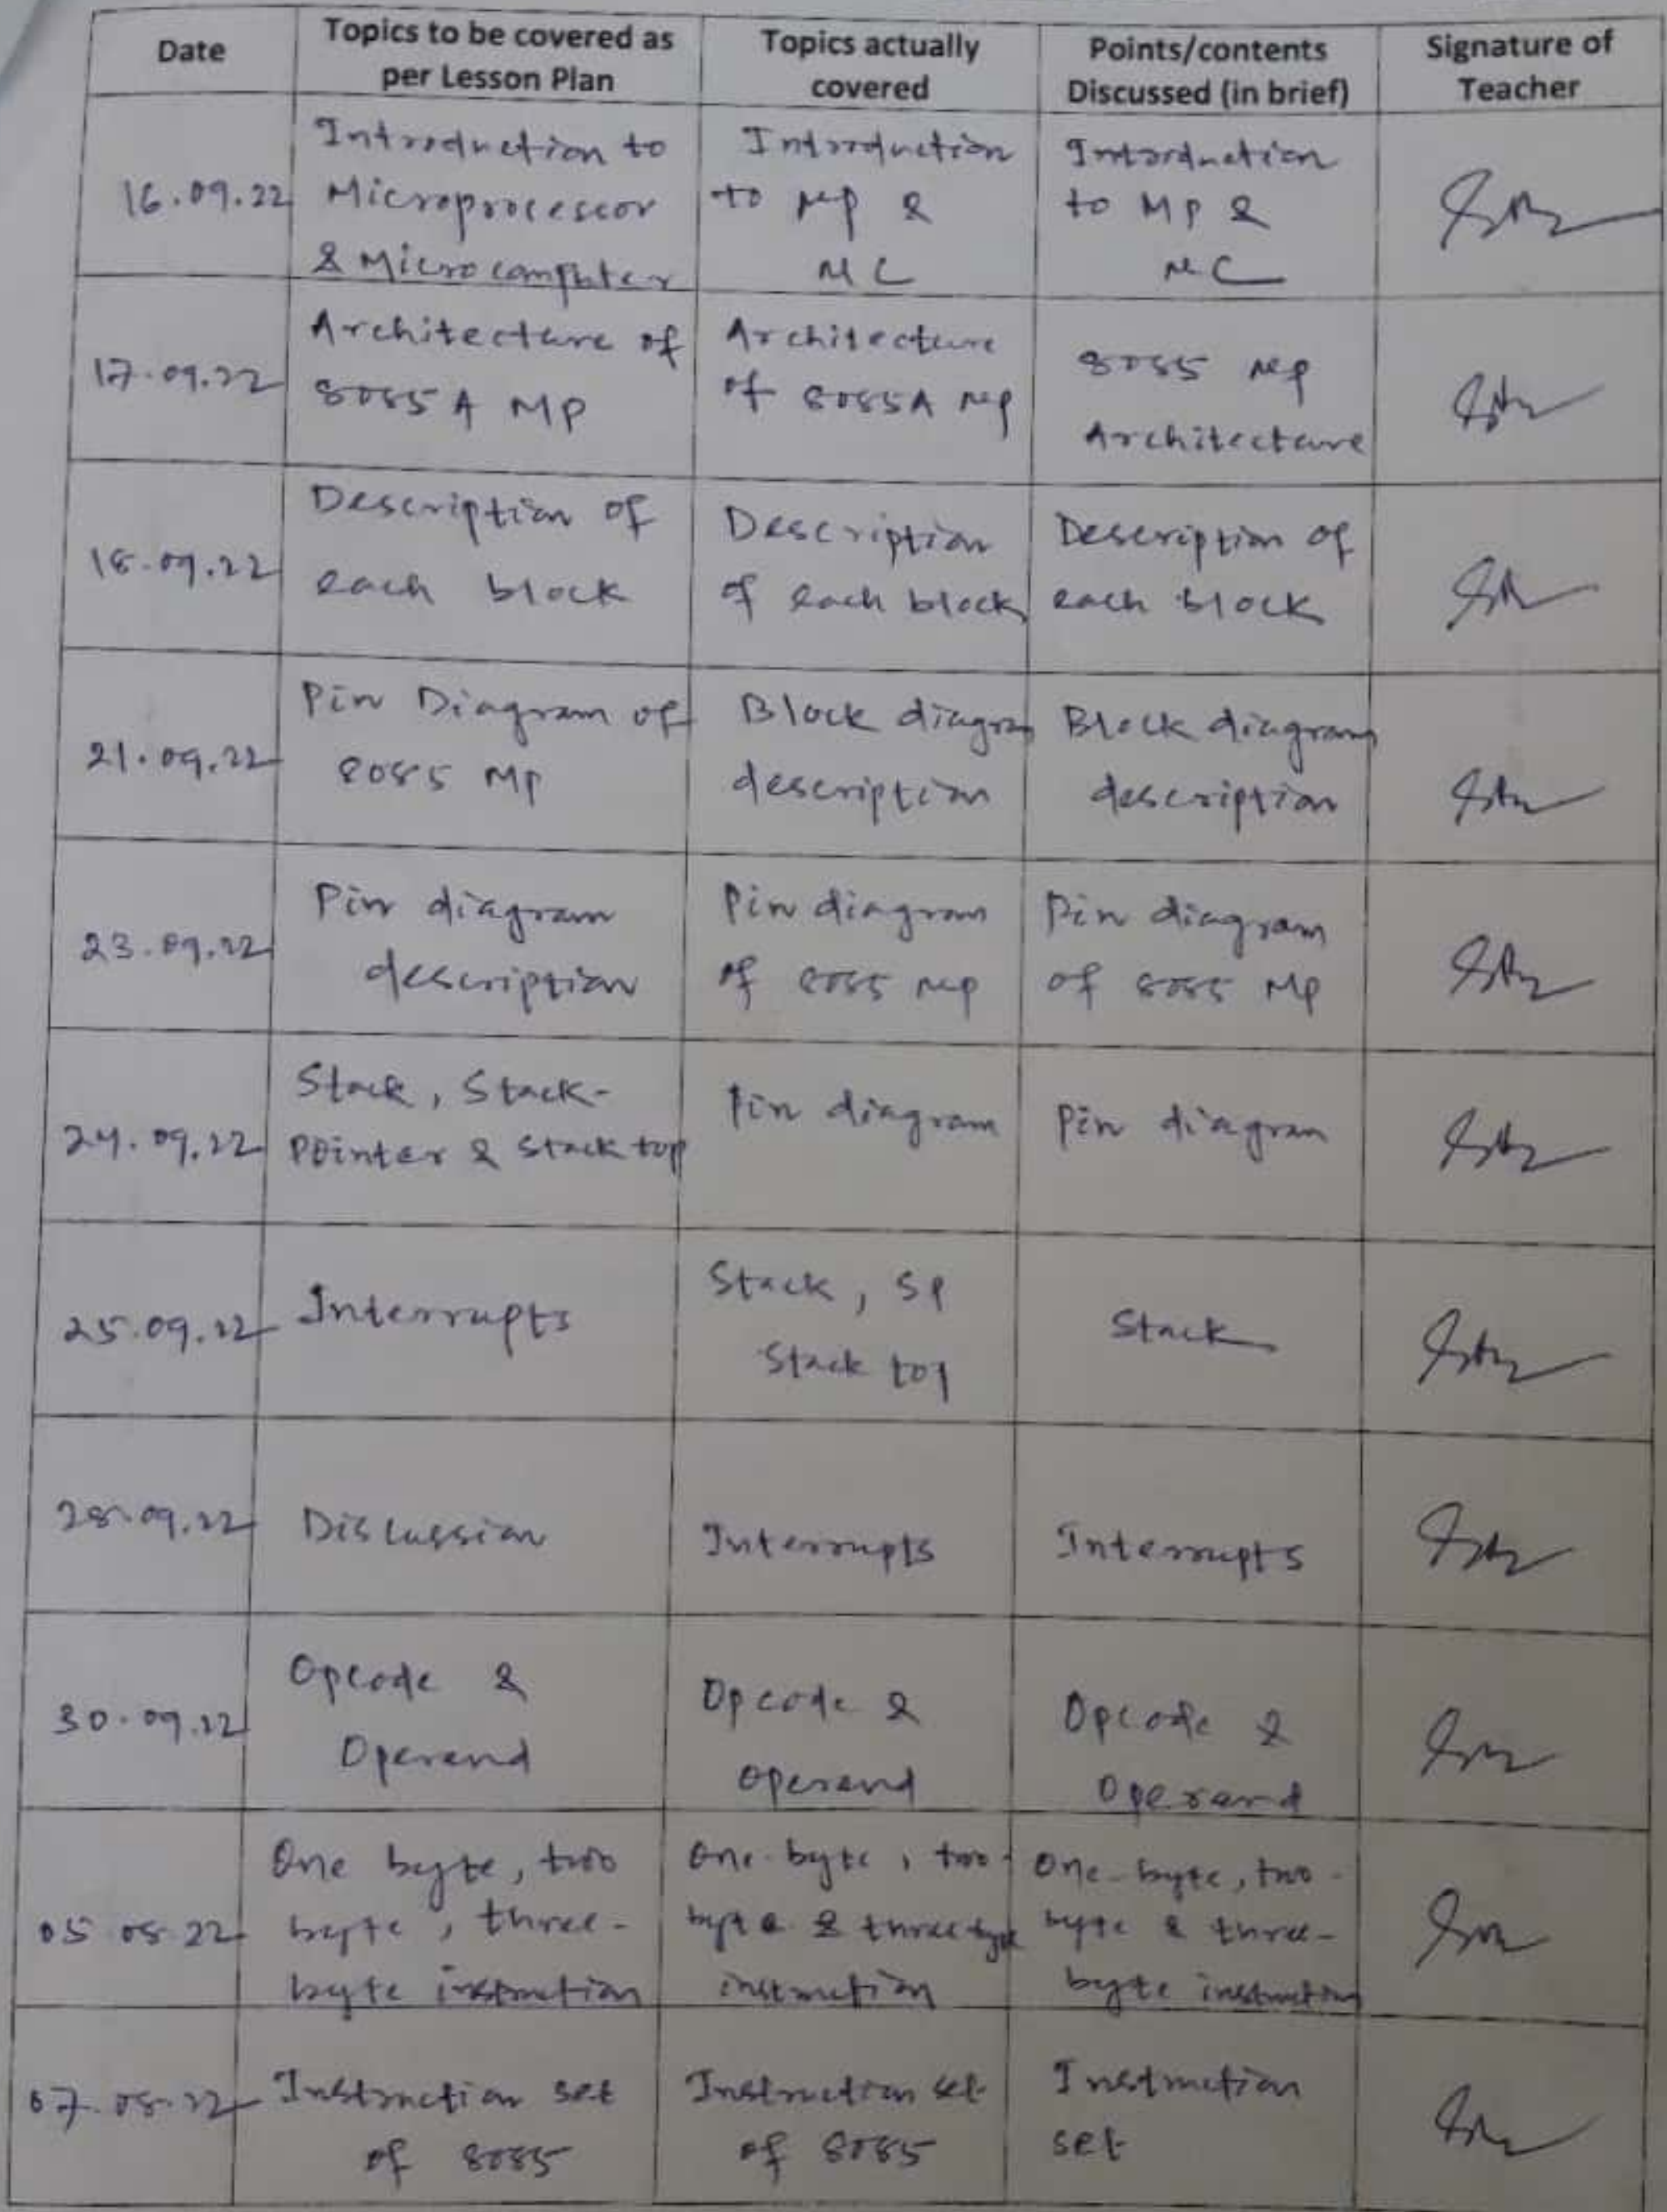 Date
Topics to be covered as
per Lesson Plan
Topics actually
covered
Points/contents
Discussed (in brief)
Signature of
Teacher
16.09.22
Introduction to
Microprocessor
& Microcomputer
Introduction
to MP &
MC
Introduction
to MP &
MC
17.09.22
Architecture of
8085A MP
Architecture
of 8085A MP
8085 MP
Architecture
18.09.22
Description of
each block
Description
of each block
Description of
each block
21.09.22
Pin Diagram of
8085 MP
Block diagram
description
Block diagram
description
23.09.22
Pin diagram
description
Pin diagram
of 8085 MP
Pin diagram
of 8085 MP
24.09.22
Stack, Stack-
Pointer & Stack top
Pin diagram
Pin diagram
25.09.22
Interrupts
Stack, SP
Stack top
Stack
28.09.22
Discussion
Interrupts
Interrupts
30.09.22
Opcode &
Operand
Opcode &
Operand
Opcode &
Operand
05.08.22
One byte, two
byte, three-
byte instruction
One-byte, two-
byte & three byte
instruction
One-byte, two-
byte & three-
byte instruction
07.08.22
Instruction set
of 8085
Instruction set
of 8085
Instruction
set